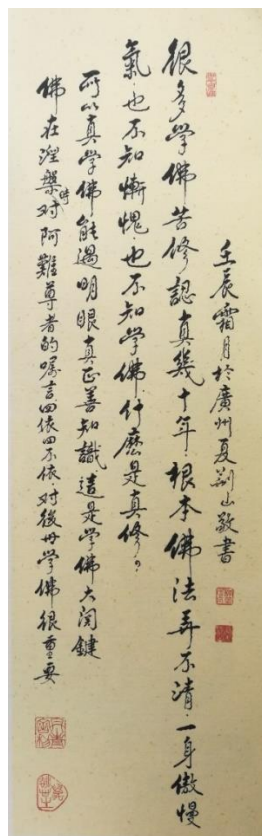 很多学佛苦修認真幾十年·根本佛法弄不清·一身傲慢
氣·也不知慚愧·也不知学佛·什麽是真修?
所以真学佛能遇明眼真正善知識這是学佛大関鍵
佛在涅槃時对阿難尊者的嘱言四依四不依·对後世学佛很重要
壬辰霜月於廣州夏荊山敬書